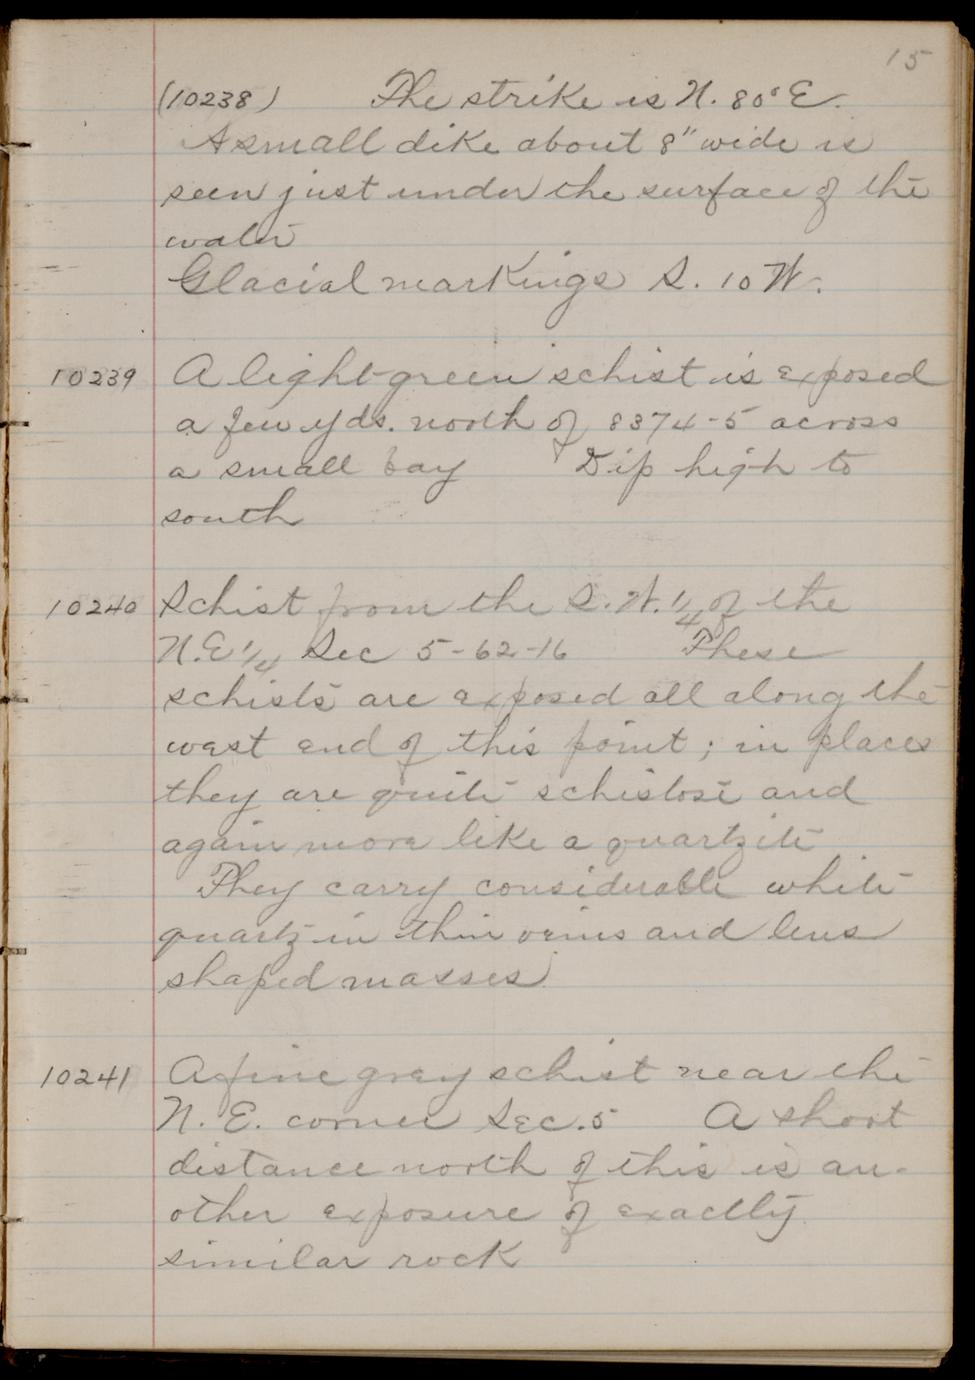 15
(10238) The strike is N. 80° E.
A small dike about 8" wide is
seen just under the surface of the
water
Glacial markings S. 10 W.
10239 A light-green schist is exposed
a few yds. north of 8374-5 across
a small bay Dip high to
south
10240 Schist from the S. W. 1/4 of the
N. E 1/4 Sec 5-62-16 These
schists are exposed all along the
west end of this point; in places
they are quite schistose and
again more like a quartzite
They carry considerable white
quartz in thin veins and lens
shaped masses
10241 A fine gray schist near the
N. E. corner Sec. 5 A short
distance north of this is an-
other exposure of exactly
similar rock